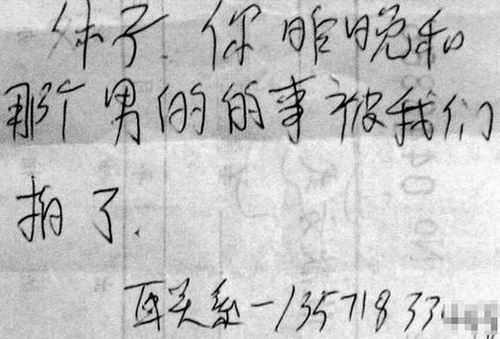 妹子.你昨晚和
那个男的的事被我们
拍了.
联系—13571833